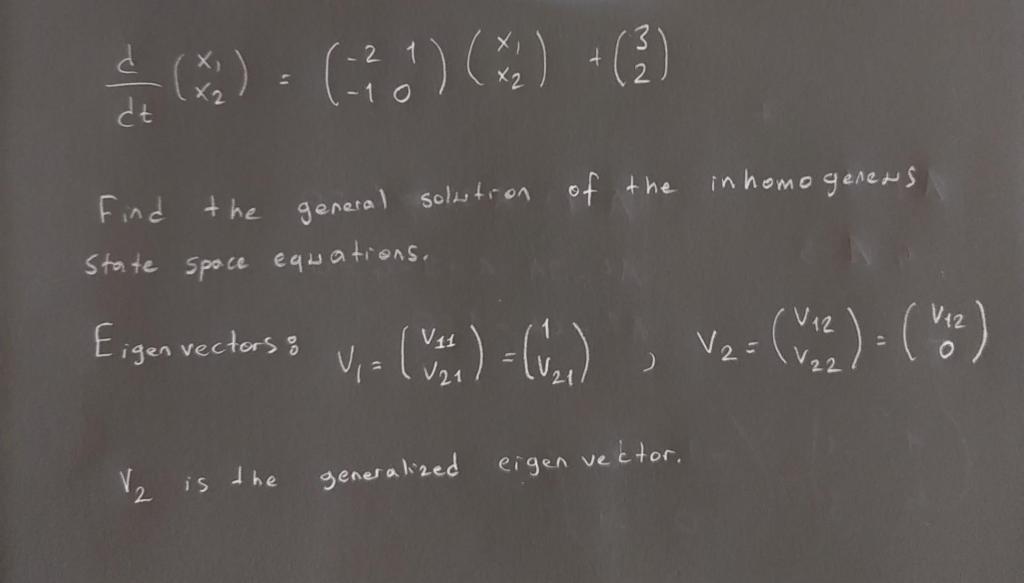 d/dt (x₁ x₂) = (-2 1 -1 0) (x₁ x₂) + (3 2)
Find the general solution of the inhomogeneus
state space equations.
Eigen vectors: V₁ = (V₁₁ V₂₁) = (1 V₂₁) , V₂ = (V₁₂ V₂₂) = (V₁₂ 0)
V₂ is the generalized eigen vector.